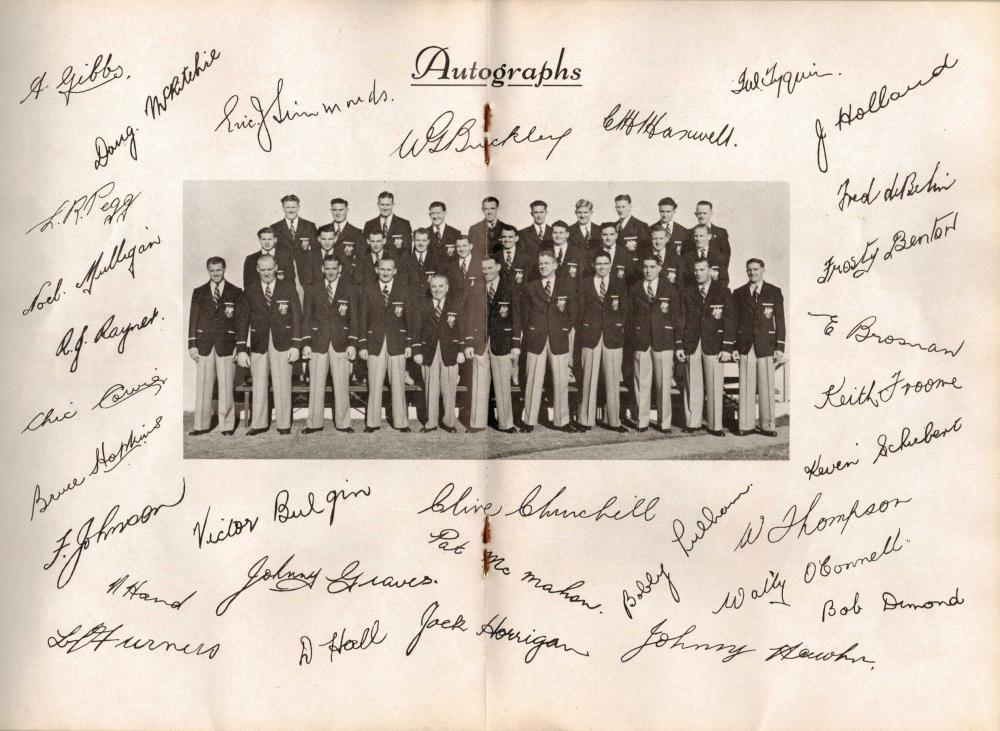 Autographs
A Gibbs.
Doug. McRitchie
Eric J Simmonds.
W G Buckley
C H Maxwell.
Tal Tyquin.
J Holland
L. R. Pegg
Fred deBelin
Noel. Mulligan
Frosty Benton
R. J. Rayner.
E Brosnan
Chic Cowie
Keith Froome
Bruce Hopkins
Keven Schubert
F. Johnson
Victor Bulgin
Clive Churchill
Bobby Lulham.
W Thompson
N Hand
Johnny Graves.
Pat McMahon.
Wally O'Connell.
Bob Dimond
D Hall
Jack Horrigan
Johnny Hawke.